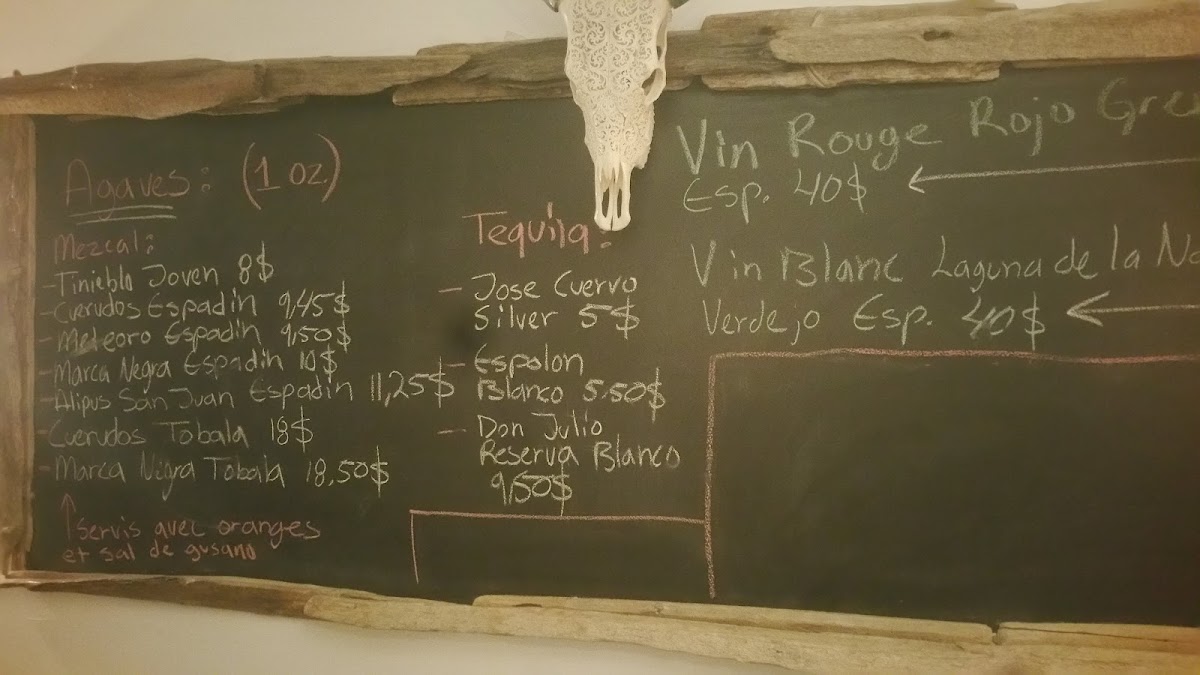 Agaves: (1 oz)
Mezcal:
- Tinieblo Joven 8$
- Cuerudos Espadin 9,45$
- Meteoro Espadin 9,50$
- Marca Negra Espadin 10$
- Alipus San Juan Espadin 11,25$
- Cuerudos Tobala 18$
- Marca Negra Tobala 18,50$
↑ servis avec oranges
et sal de gusano
Tequila:
- Jose Cuervo
Silver 5$
- Espolon
Blanco 5.50$
- Don Julio
Reserva Blanco
9,50$
Vin Rouge Rojo Gre
Esp. 40$ ←
Vin Blanc Laguna de la Na
Verdejo Esp. 40$ ←